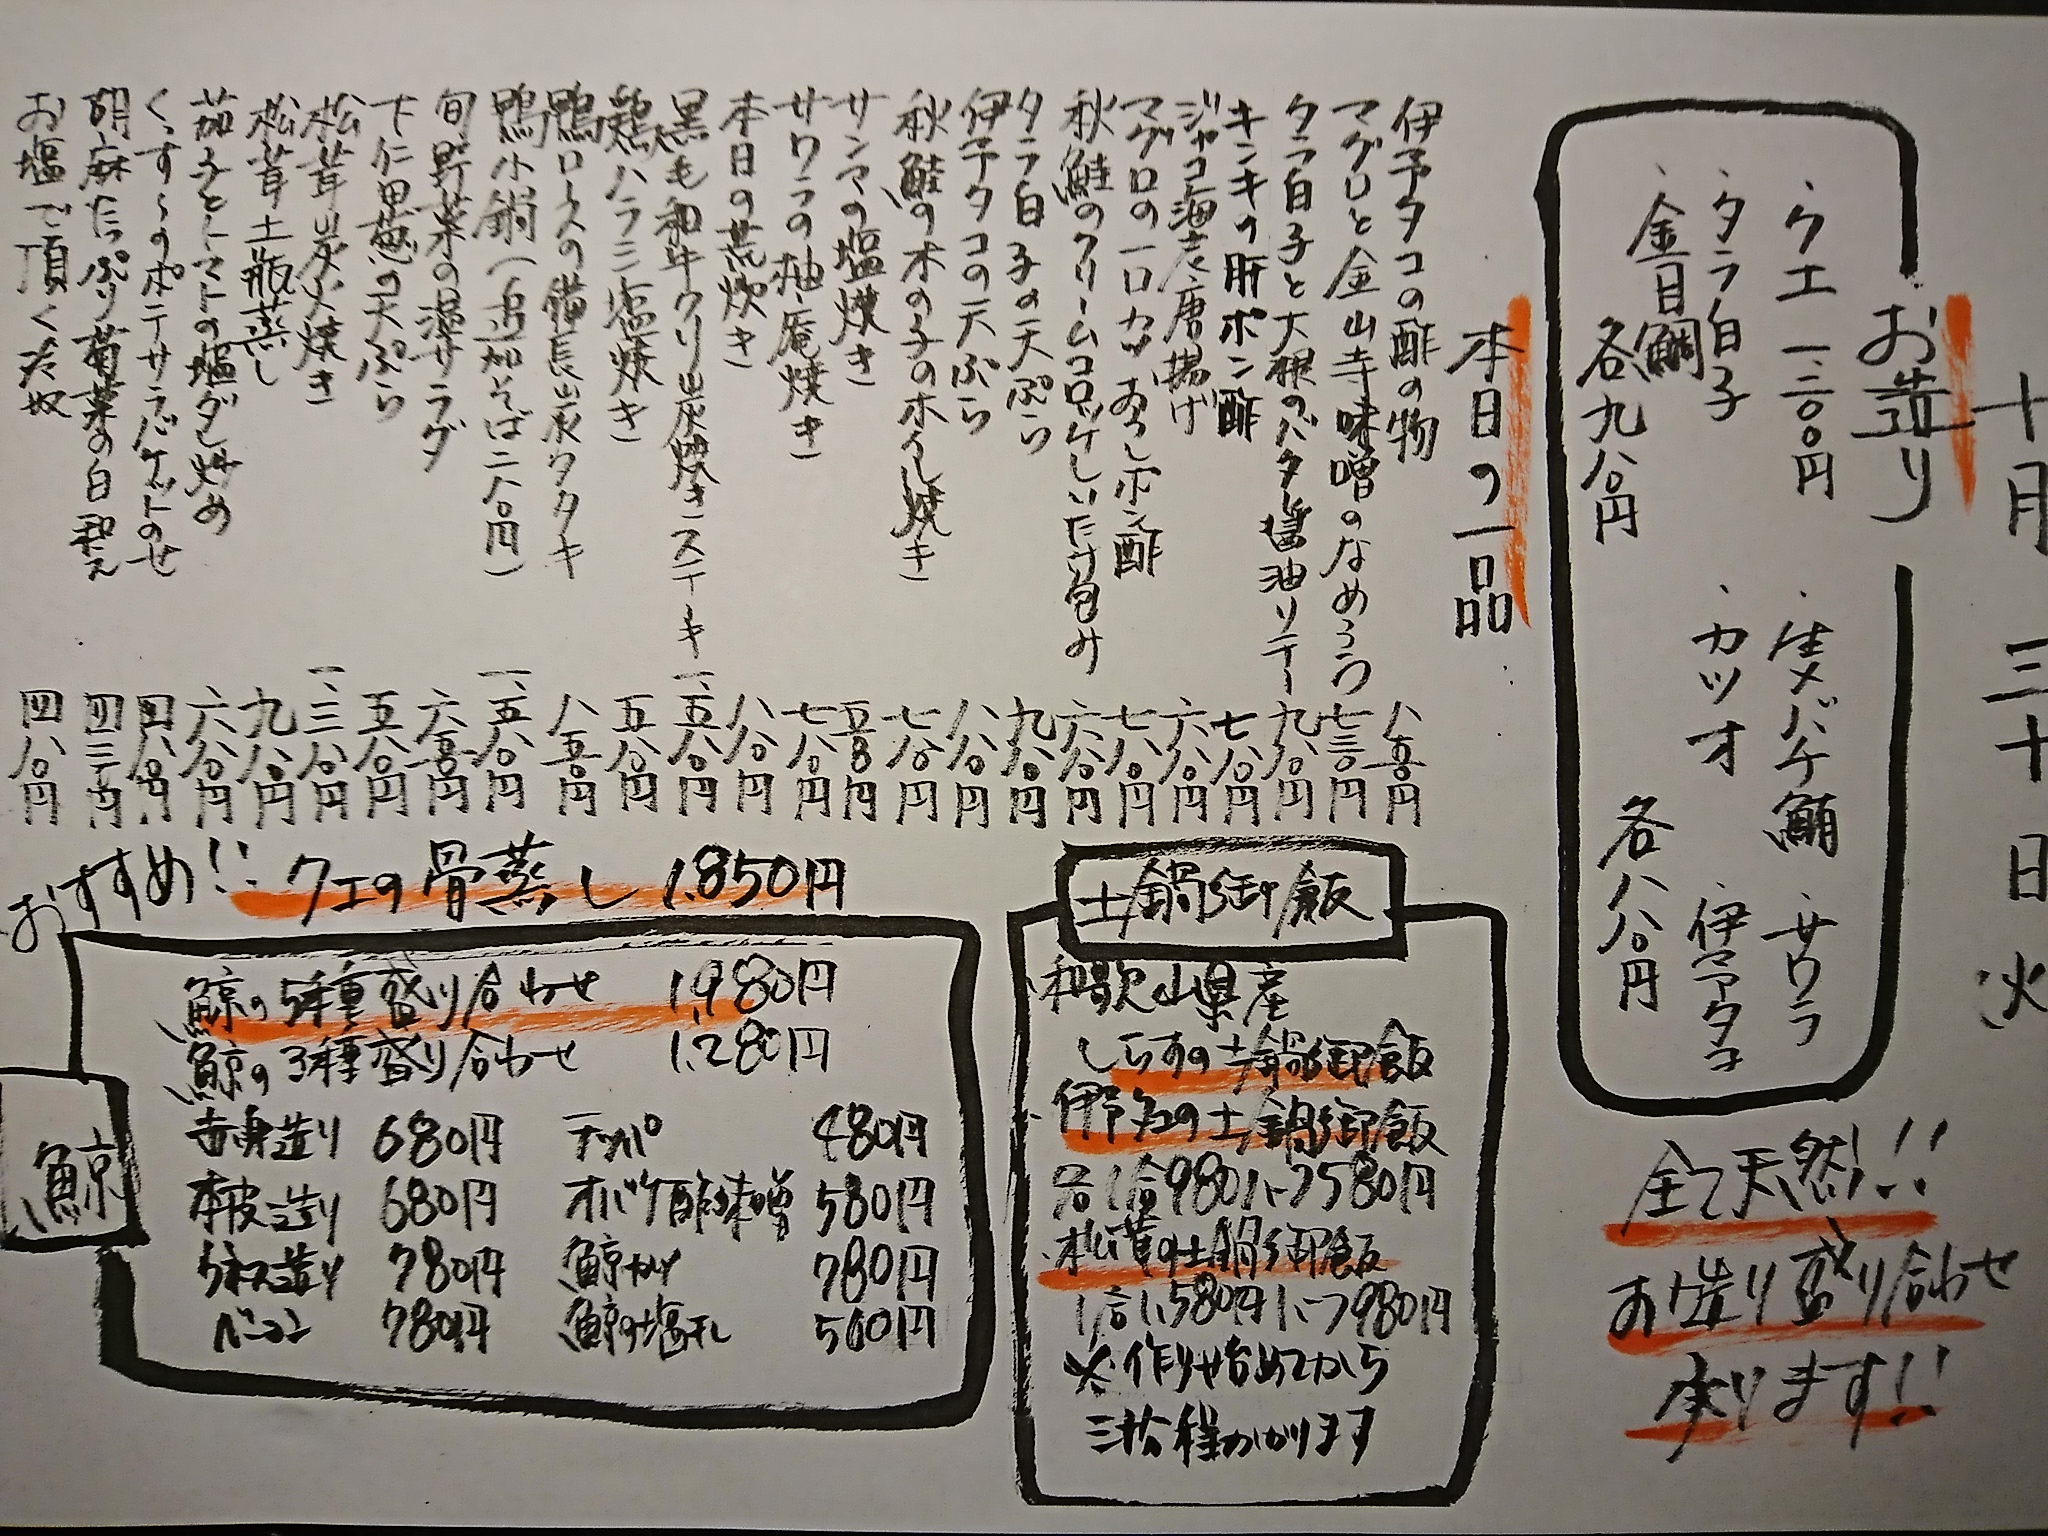 十月三十日火
お造り
・クエ 一、二〇〇円
・タラ白子
・金目鯛
各九八〇円
・生メバチ鮪
・サワラ
・カツオ
・伊予タコ
各八八〇円
全て天然!!
お造り盛り合わせ
承ります!!
本日の一品
伊予タコの酢の物 八五〇円
マグロと金山寺味噌のなめろう 七三〇円
タラ白子と大根のバタ醤油ソテー 九八〇円
キンキの肝ポン酢 七八〇円
ジャコ海老唐揚げ 六八〇円
マグロの一口カツおろしポン酢 七八〇円
秋鮭のクリームコロッケしいたけ包み 六八〇円
タラ白子の天ぷら 九八〇円
伊予タコの天ぷら 八八〇円
秋鮭の木の子のホイル焼き 七八〇円
サンマの塩焼き 五八〇円
サワラの柚庵焼き 七八〇円
本日の荒炊き 八八〇円
黒毛和牛クリ炭焼きステーキ 一、五八〇円
鶏ハラミ塩焼き 五八〇円
鴨ロースの備長炭タタキ 八五〇円
鴨小鍋(追加そば二八〇円) 一、五八〇円
旬野菜の温サラダ 六五〇円
下仁田葱の天ぷら 五八〇円
松茸炭火焼き 一、三八〇円
松茸土瓶蒸し 九八〇円
茄子とトマトの塩ダレ炒め 六八〇円
くっす〜のポテサラバケットのせ 四八〇円
胡麻たっぷり菊菜の白和え 四三〇円
お塩で頂く冷奴 四八〇円
土鍋御飯
・和歌山県産
しらすの土鍋御飯
・伊予タコの土鍋御飯
各1合980円〜
・松茸の土鍋御飯
1合1,580円
※作り始めてから
三十分程かかります
おすすめ!! クエの骨蒸し 1,850円
鯨
鯨の5種盛り合わせ 1,980円
鯨の3種盛り合わせ 1,280円
赤身造り 680円 テッパ 480円
本皮造り 680円 オバケ酢味噌 580円
ウネス造り 780円 鯨カツ 780円
ベーコン 780円 鯨の塩干し 500円